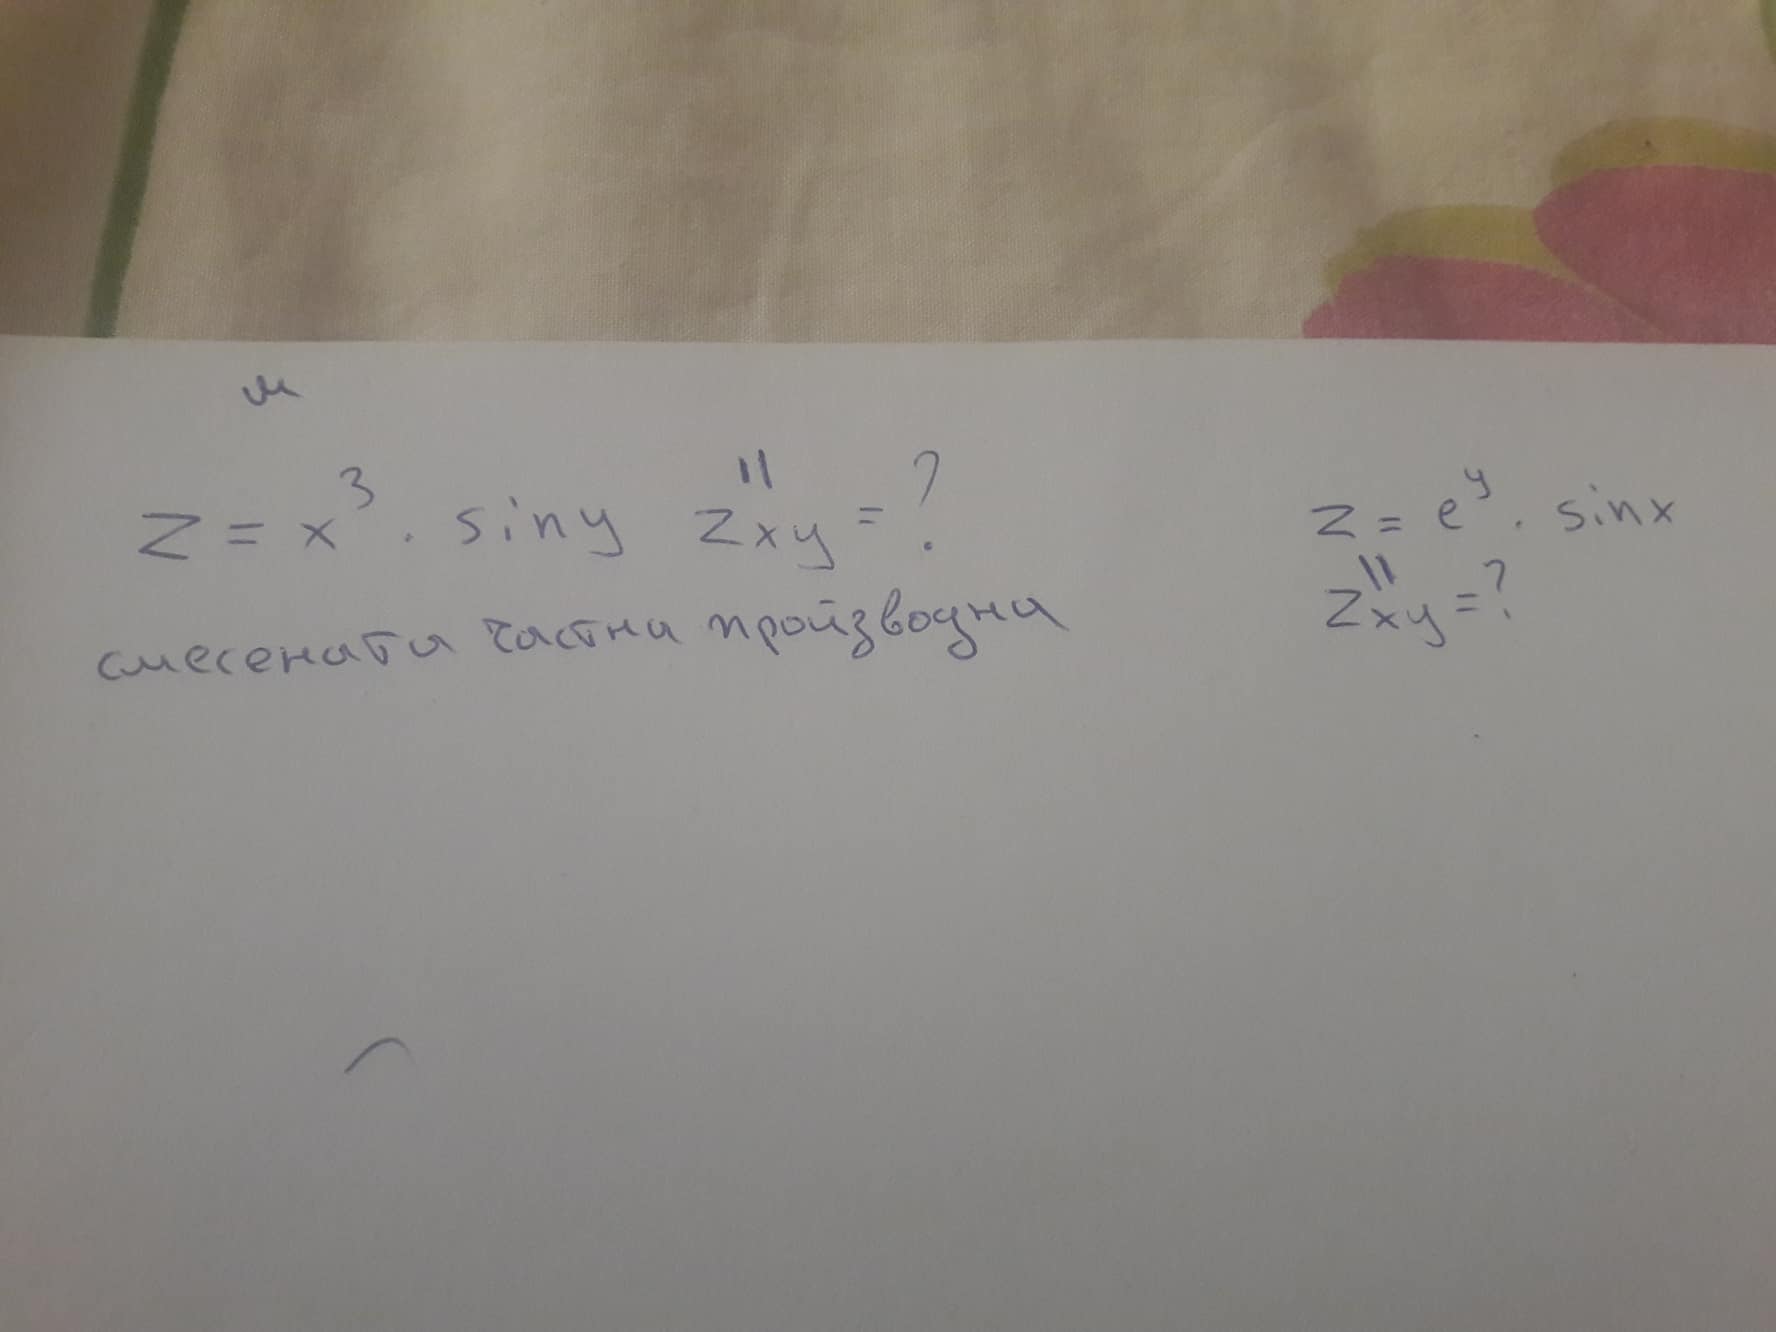 z = x³ . siny z''xy = ?
смесената частна пройзводна
z = e^y . sinx
z''xy = ?